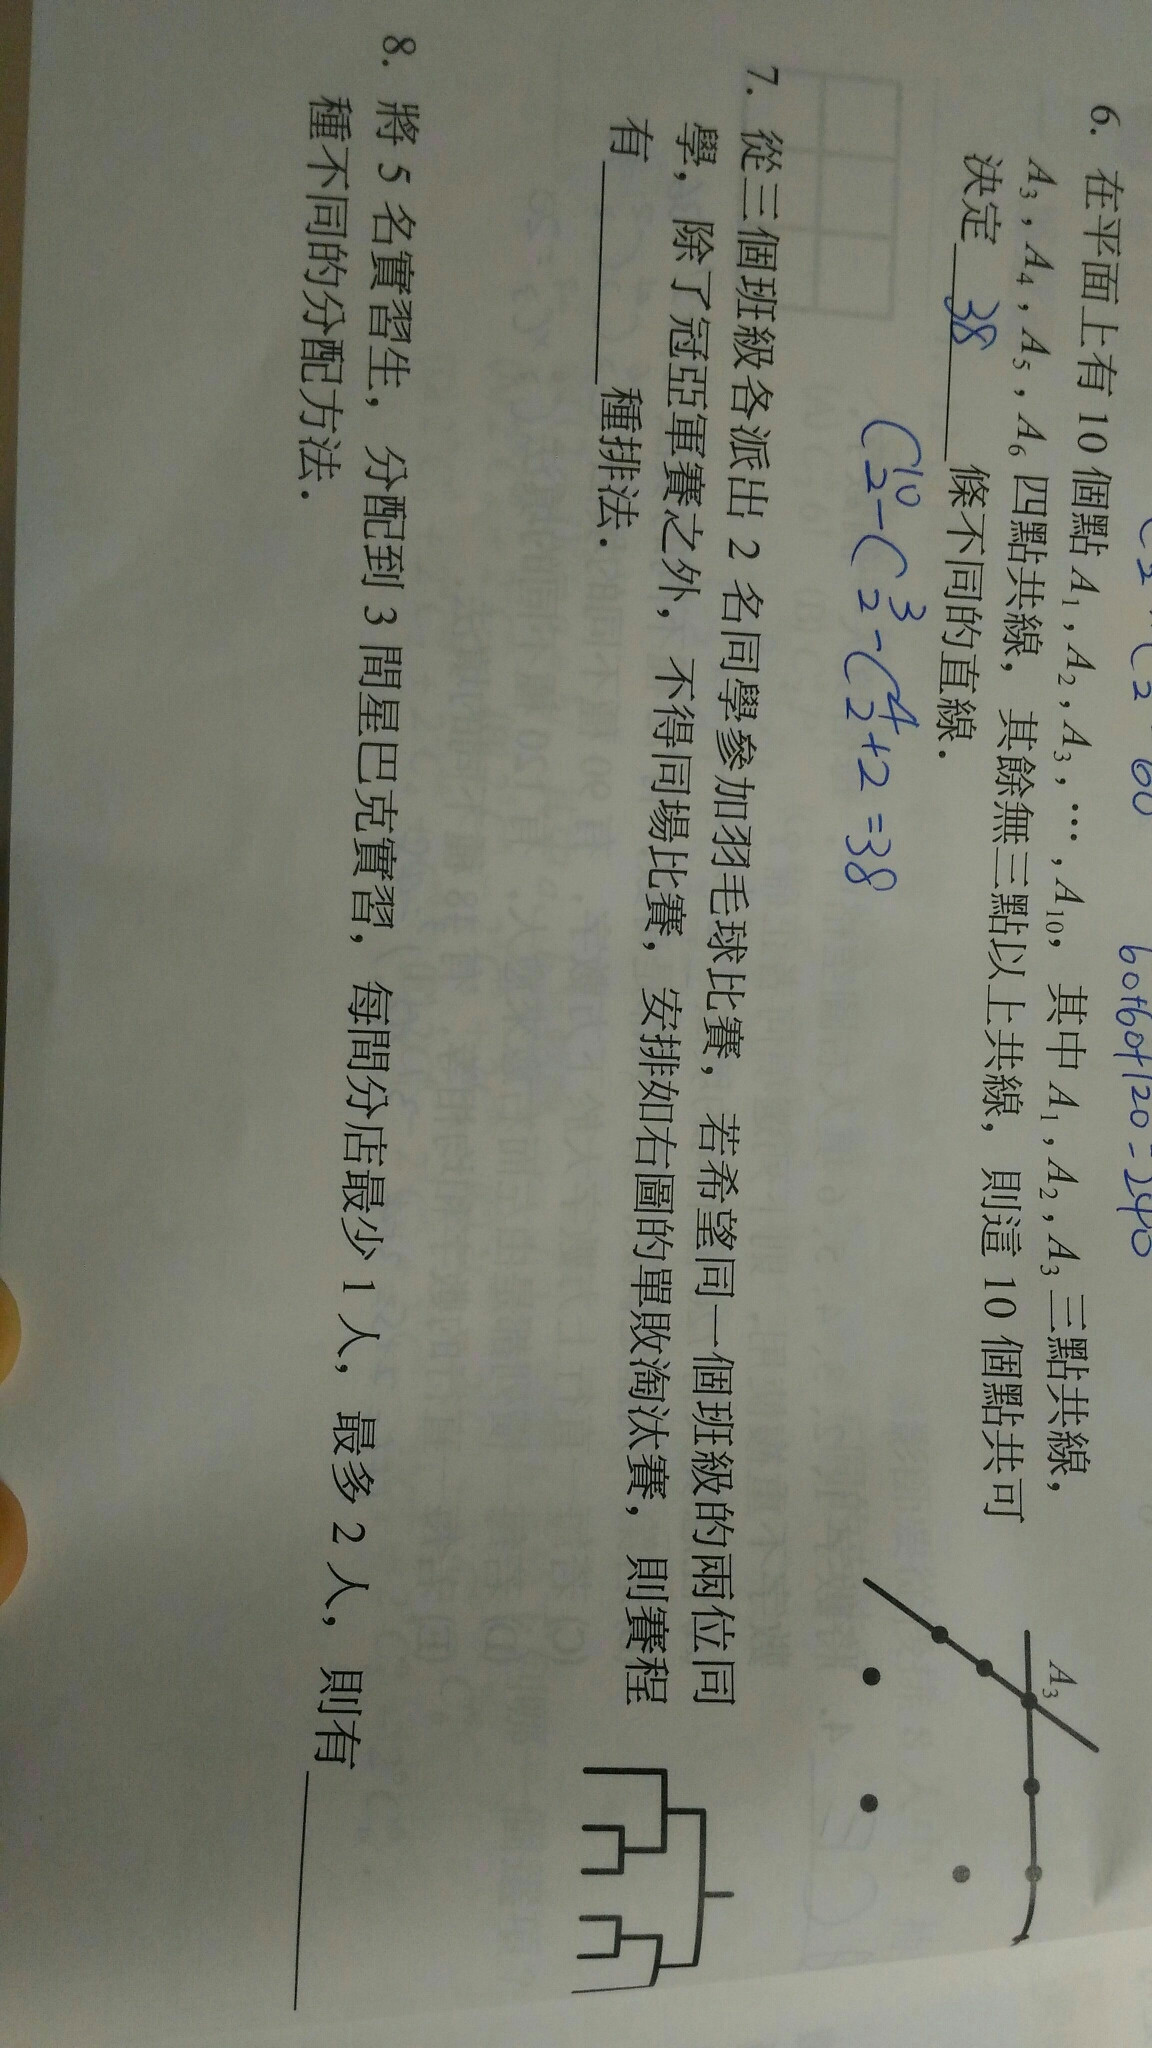 60+60+120=240
6. 在平面上有 10 個點 A₁, A₂, A₃, …, A₁₀, 其中 A₁, A₂, A₃ 三點共線,
A₃, A₄, A₅, A₆ 四點共線, 其餘無三點以上共線, 則這 10 個點共可
決定 38 條不同的直線.
A₃
C¹⁰₂-C³₂-C⁴₂+2=38
7. 從三個班級各派出 2 名同學參加羽毛球比賽, 若希望同一個班級的兩位同
學, 除了冠亞軍賽之外, 不得同場比賽, 安排如右圖的單敗淘汰賽, 則賽程
有______種排法.
8. 將 5 名實習生, 分配到 3 間星巴克實習, 每間分店最少 1 人, 最多 2 人, 則有______
種不同的分配方法.